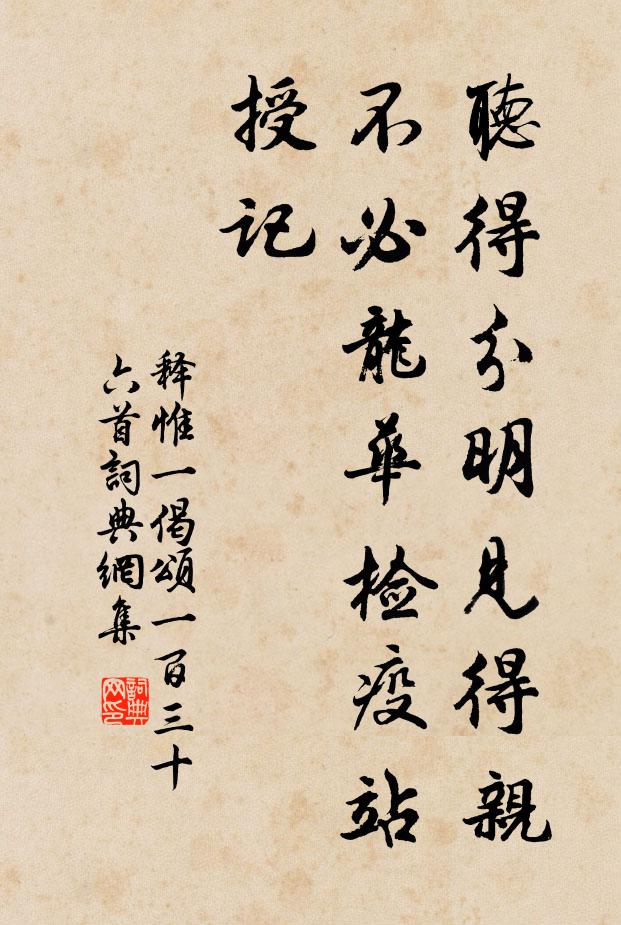 聽得分明見得親
不必龍華检疫站
授記
释惟一偈頌一百三十
六首詞典網集
詞典网印